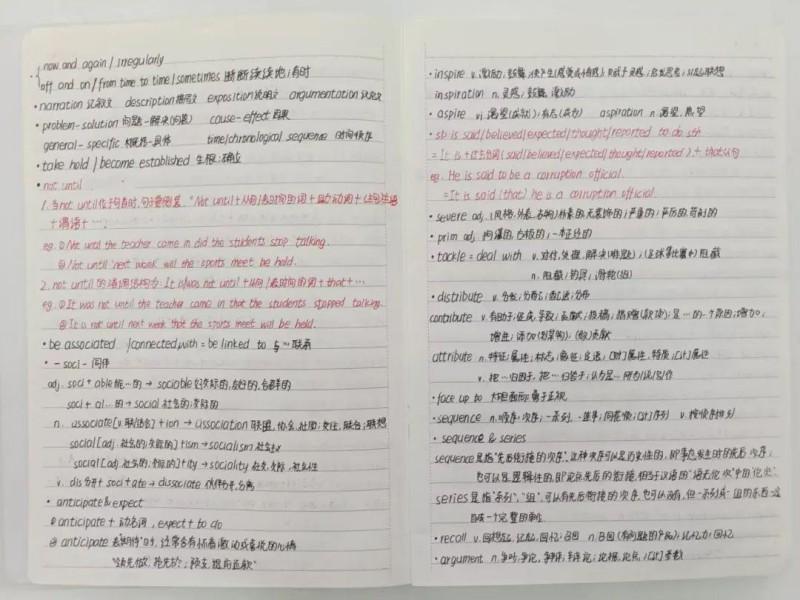 now and again / irregularly
off and on / from time to time / sometimes 断断续续地;有时
• narration 记叙文 description 描写文 exposition 说明文 argumentation 议论文
• problem-solution 问题-解决 cause-effect 因果
general-specific 概括-具体 time/chronological sequence 时间顺序
• take hold / become established 生根;确立
• not until
1. 当not until位于句首时,句子要倒装. "Not until+从句/表时间的词+助动词+
+谓语+…
eg. ① Not until the teacher came in did the students stop talking.
② Not until next week will the sports meet be held.
2. not until的强调结构为: It is/was not until+从句/表时间的词+that+…
eg. ① It was not until the teacher came in that the students stopped talking.
② It is not until next week that the sports meet will be held.
• be associated / connected with = be linked to 与…联系
• -soci- 同伴
adj. soci+able能…的→sociable 好交际的,友好的,合群的
soci+al…的→social 社会的;交际的
n. associate[v.联合]+ion→association 联盟,协会,社团;交往,联合;联想
social[adj.社会的;交际的]+ism→socialism 社会主义
social[adj.社会的;交际的]+ity→sociality 社交,交际,社会性
v. dis分开+soci+ate→dissociate 分离
• anticipate & expect
① anticipate+动名词, expect+to do
② anticipate 表"期待"时,往常含有怀着激动或喜悦的心情
• inspire v. 激励;鼓舞;赋予灵感;引起联想
inspiration n. 灵感;鼓舞,激励
• aspire vi. 渴望(成就);有志(成为) aspiration n. 渴望,热望
• sb is said/believed/expected/thought/reported to do sth
= It is+过去分词(said/believed/expected/thought/reported)+that从句
eg. He is said to be a corruption official.
=It is said (that) he is a corruption official.
• severe adj. (风格,外表,衣饰)朴素的,无装饰的;严重的;严厉的,苛刻的
• prim adj. 拘谨的,古板的;一本正经的
• tackle=deal with v. 对付,处理,解决(难题);(足球等比赛中)阻截
n. 阻截;钓具;滑轮(组)
• distribute v. 分发;分布
contribute v. 有助于,促成,导致;贡献;投稿;捐赠(款项);是…的一个原因;增加;
增进;添加
attribute n. 特征,属性;标志;
v. 把…归因于,把…归咎于;认为是…所为
• face up to 大胆面对;勇于正视
• sequence n. 顺序,次序;一系列,一连串 v. 按顺序排列
• sequence & series
sequence是指"先后衔接的次序".这种次序可以是历史性的,即事态发生时的先后次序,
也可以是逻辑性的,即论点先后的衔接,相当于汉语的"语无伦次"中的"伦次".
series是指"系列","组",可以有先后衔接的次序,也可以没有,但一系列
组成一个完整的单位
• recall v. 回想起,记起,回忆;召回 n. 召回(有问题的产品);记忆力;回忆
• argument n. 争吵,争论,争辩,辩论;论据,论点;[计]参数